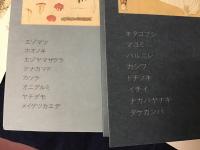 エゾマツ
ホオノキ
エゾヤマザクラ
ナナカマド
カツラ
オニグルミ
ヤチダモ
メイゲツカエデ
キタコブシ
マユミ
ハルニレ
カシワ
ドチノキ
イチイ
ナガバヤナギ
ダケカンバ